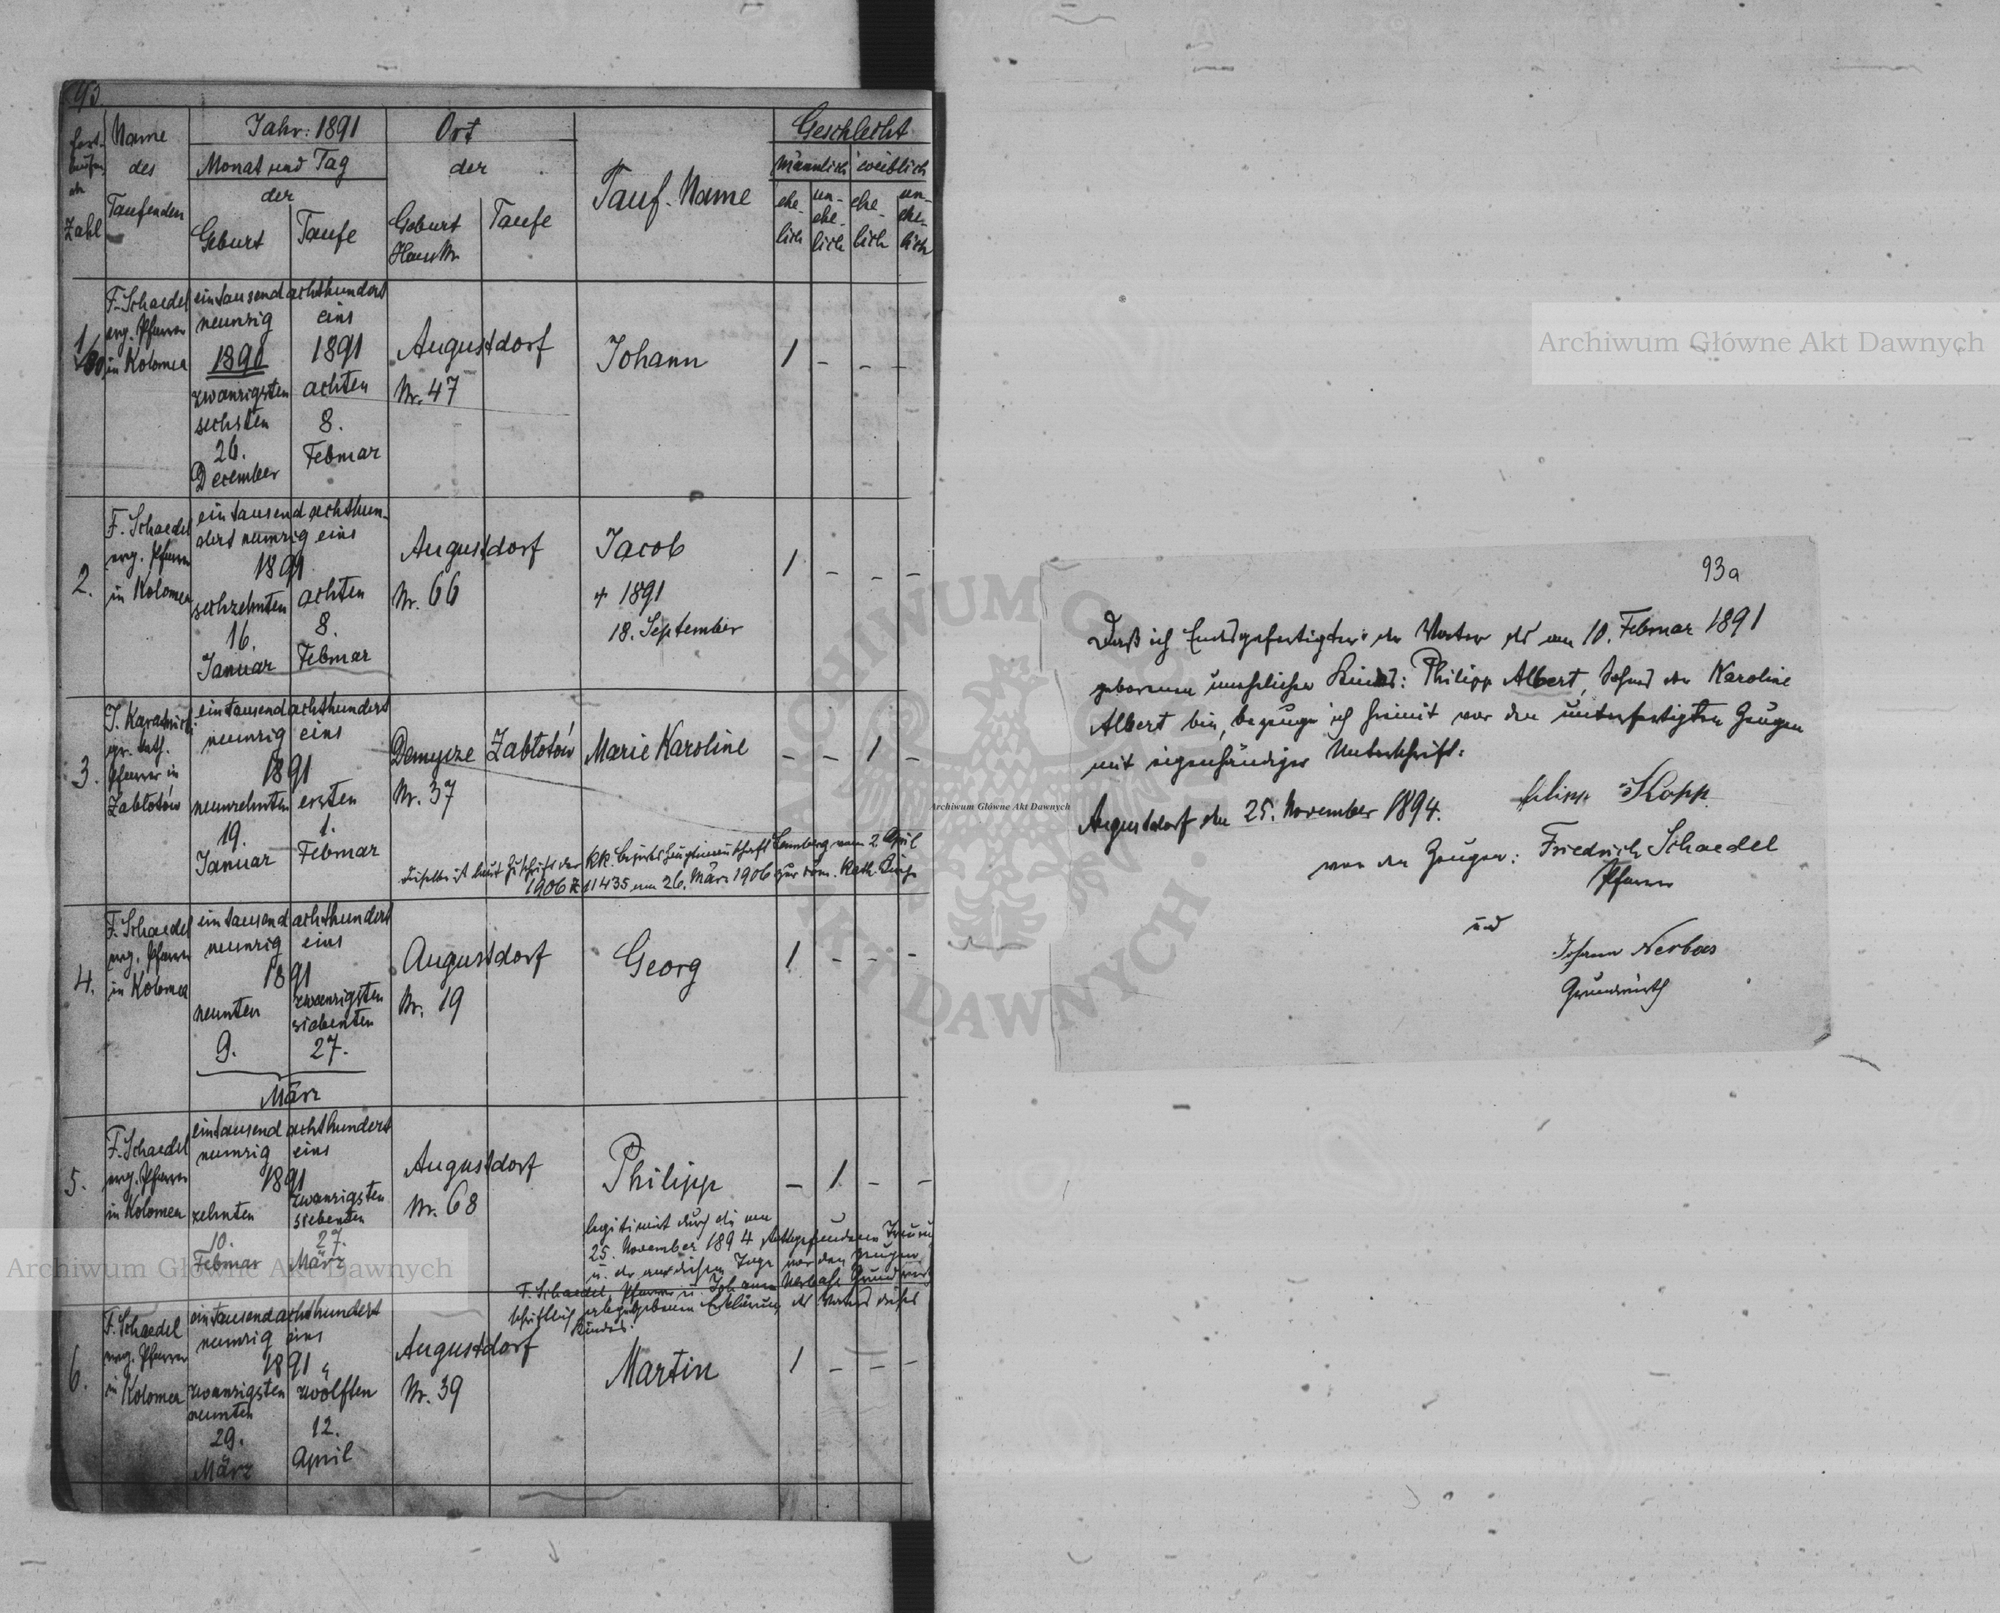 93.
Fort-
laufen
de
Zahl
Name
des
Taufenden
Jahr: 1891
Monat und Tag
der
Geburt
Taufe
Ort
der
Geburt
Haus Nr.
Taufe
Tauf-Name
Geschlecht
männlich
weiblich
ehe-
lich
un-
ehe-
lich
ehe-
lich
un-
ehe-
lich
1
F. Schaedel
evg. Pfarrer
in Kolomea
eintausend achthundert
neunzig eins
1890 1891
zwanzigsten achten
sechsten 8.
26. Februar
December
Augustdorf
Nr. 47
Johann
1 - - -
2.
F. Schaedel
evg. Pfarrer
in Kolomea
eintausend achthun-
dert neunzig eins
1891
sechzehnten achten
16. 8.
Januar Februar
Augustdorf
Nr. 66
Jacob
+ 1891
18. September
1 - - -
3.
gr. kath.
Pfarrer in
Zabłotów
eintausend achthundert
neunzig eins
1891
neunzehnten ersten
19. 1.
Januar Februar
Demycze Zabłotów
Nr. 37
Marie Karoline
- - 1 -
dieselbe ist laut Zuschrift der kk. Bezirkshauptmannschaft Lemberg vom 2 April
1906 Z 11435 am 26. März 1906 zur röm. Kath. Kirche
4.
F. Schaedel
evg. Pfarrer
in Kolomea
eintausend achthundert
neunzig eins
1891
neunten zwanzigsten
siebenten
9. 27.
März
Augustdorf
Nr. 19
Georg
1 - - -
5.
F. Schaedel
evg. Pfarrer
in Kolomea
eintausend achthundert
neunzig eins
1891
zehnten zwanzigsten
siebenten
10. 27.
Februar März
Augustdorf
Nr. 68
Philipp
- 1. - -
legitimirt durch die am
25. November 1894 stattgefundene Trauung
u. der am diesem Tage vor den Zeugen
F. Schaedel, Pfarrer u. Johann Nerbas Grundwirt
schriftlich abgegebenen Erklärung des Vaters dieses
Kindes.
6.
F. Schaedel
evg. Pfarrer
in Kolomea
eintausend achthundert
neunzig eins
1891
zwanzigsten zwölften
neunten
29. 12.
März April
Augustdorf
Nr. 39
Martin
1 - - -
93a
Daß ich Endesgefertigter der Vater des am 10. Februar 1891
geborenen unehelichen Kindes: Philipp Albert, Sohnes der Karoline
Albert bin, bezeuge ich hiemit vor den unterfertigten Zeugen
mit eigenhändiger Unterschrift:
Augustdorf den 25. November 1894. Filipp Kopp
vor den Zeugen: Friedrich Schaedel
Pfarrer
und
Johann Nerbas
Grundwirth
Archiwum Główne Akt Dawnych
Archiwum Główne Akt Dawnych
Archiwum Główne Akt Dawnych
ARCHIWUM GŁÓWNE AKT DAWNYCH